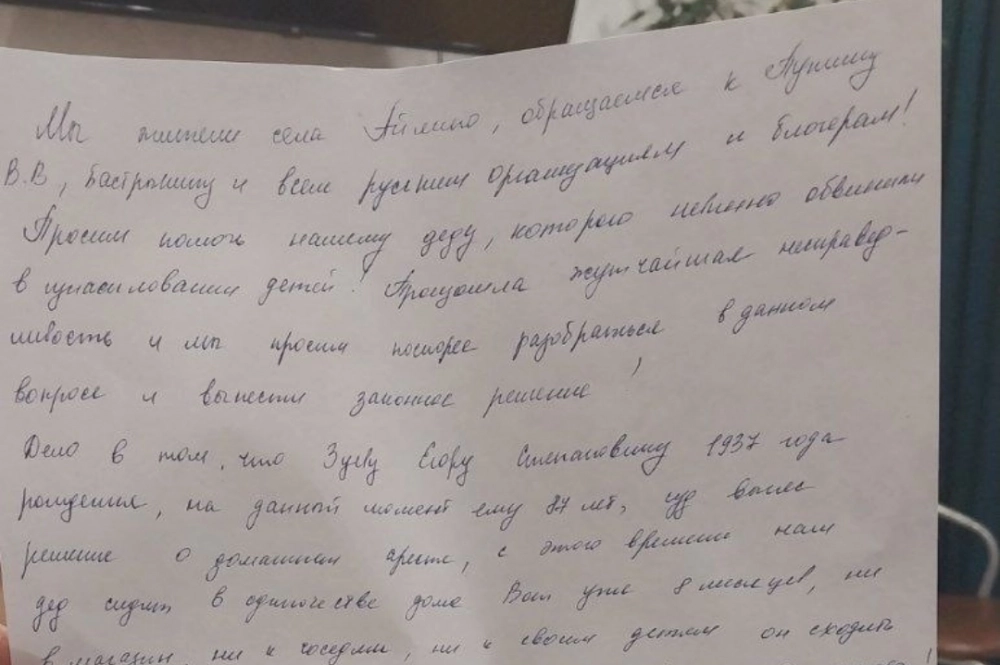 Мы жители села Аймино, обращаемся к Путину
В.В, Бастрыкину и всем русским организациям и блогерам!
Просим помочь нашему деду, которого невинно обвинили
в изнасиловании детей! Произошла жутчайшая несправед-
ливость и мы просим поскорее разобраться в данном
вопросе и вынести законное решение!
Дело в том, что Зуеву Егору Степановичу 1937 года
рождения, на данный момент ему 87 лет, суд вынес
решение о домашнем аресте, с этого времени наш
дед сидит в одиночестве дома Вот уже 8 месяцев, ни
в магазин, ни к соседям, ни к своим детям он сходить